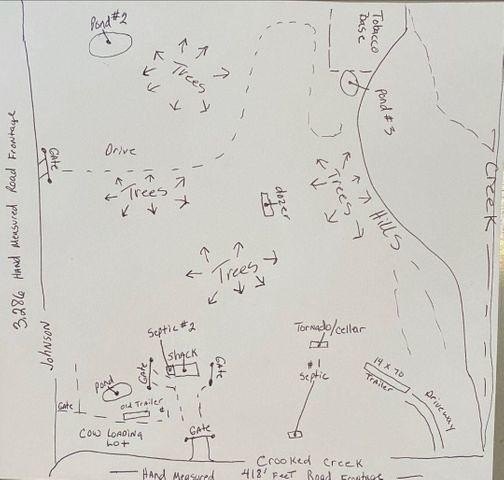 Pond #2
Trees
Tobacco
base
Pond #3
Creek
Gate
Drive
Trees
dozer
Trees
Hills
3,286 Hand Measured Road Frontage
Trees
Johnson
Septic #2
Shack
Gate
Gate
Tornado/cellar
#1
Septic
14 x 70
Trailer
Driveway
Pond
Gate
Old Trailer
Gate
Cow Loading
Lot
Crooked Creek
Hand Measured 418' Feet Road Frontage